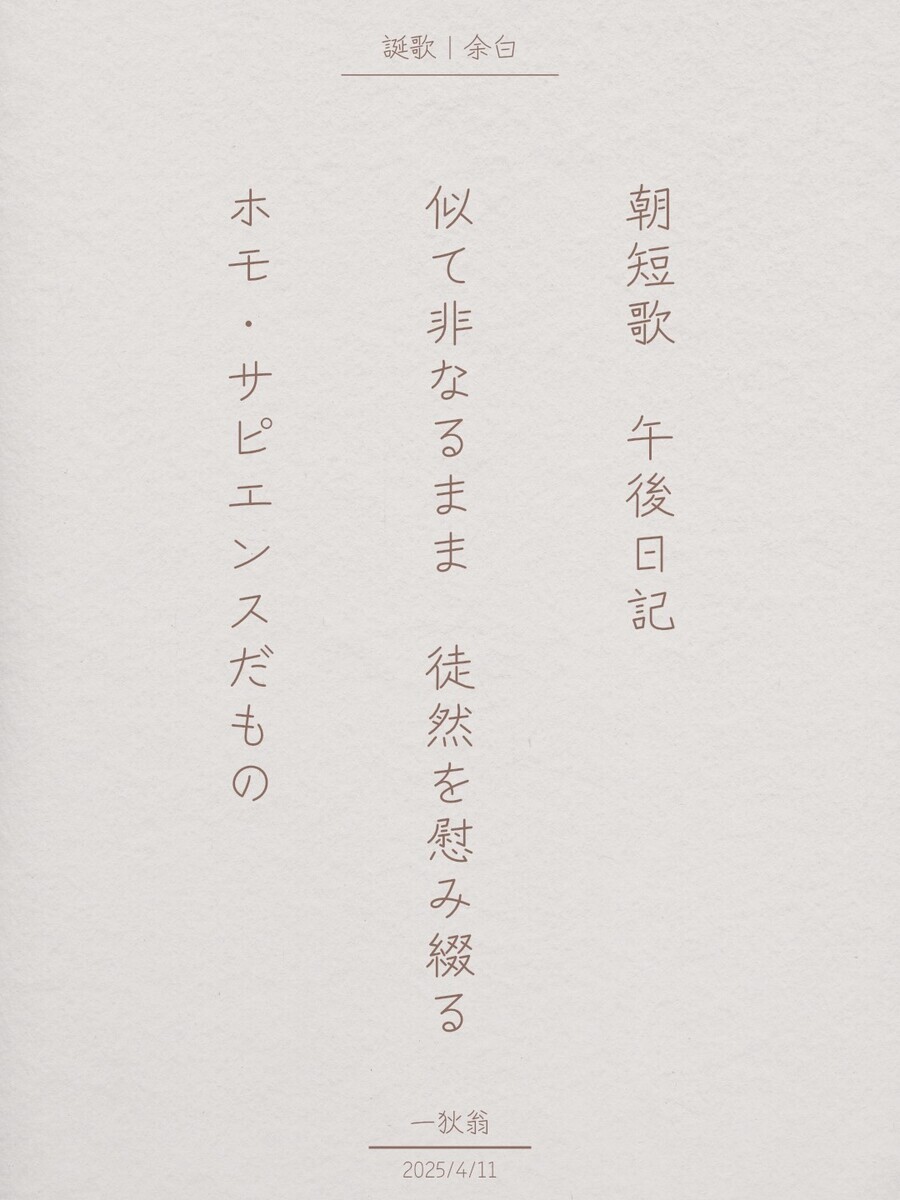 誕歌｜余白
朝短歌　午後日記
似て非なるまま　徒然を慰み綴る
ホモ・サピエンスだもの
一狄翁
2025/4/11